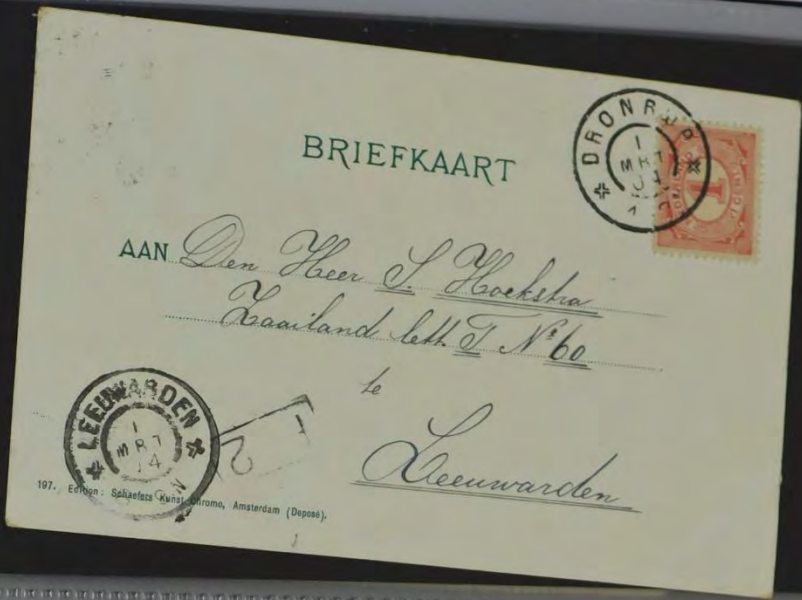 BRIEFKAART
DRONRIJP
1
MRT
04
1 CENT
AAN Den Heer S. Hoekstra
Zaailand lett. T No 60
te
Leeuwarden
LEEUWARDEN
1
MRT
04
N
2
197. Edition: Schaefers Kunst Chromo, Amsterdam (Deposé).